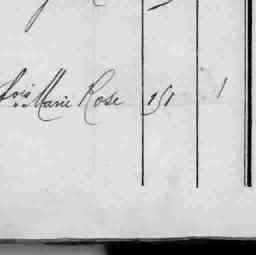 fois Marie Rose 151 1